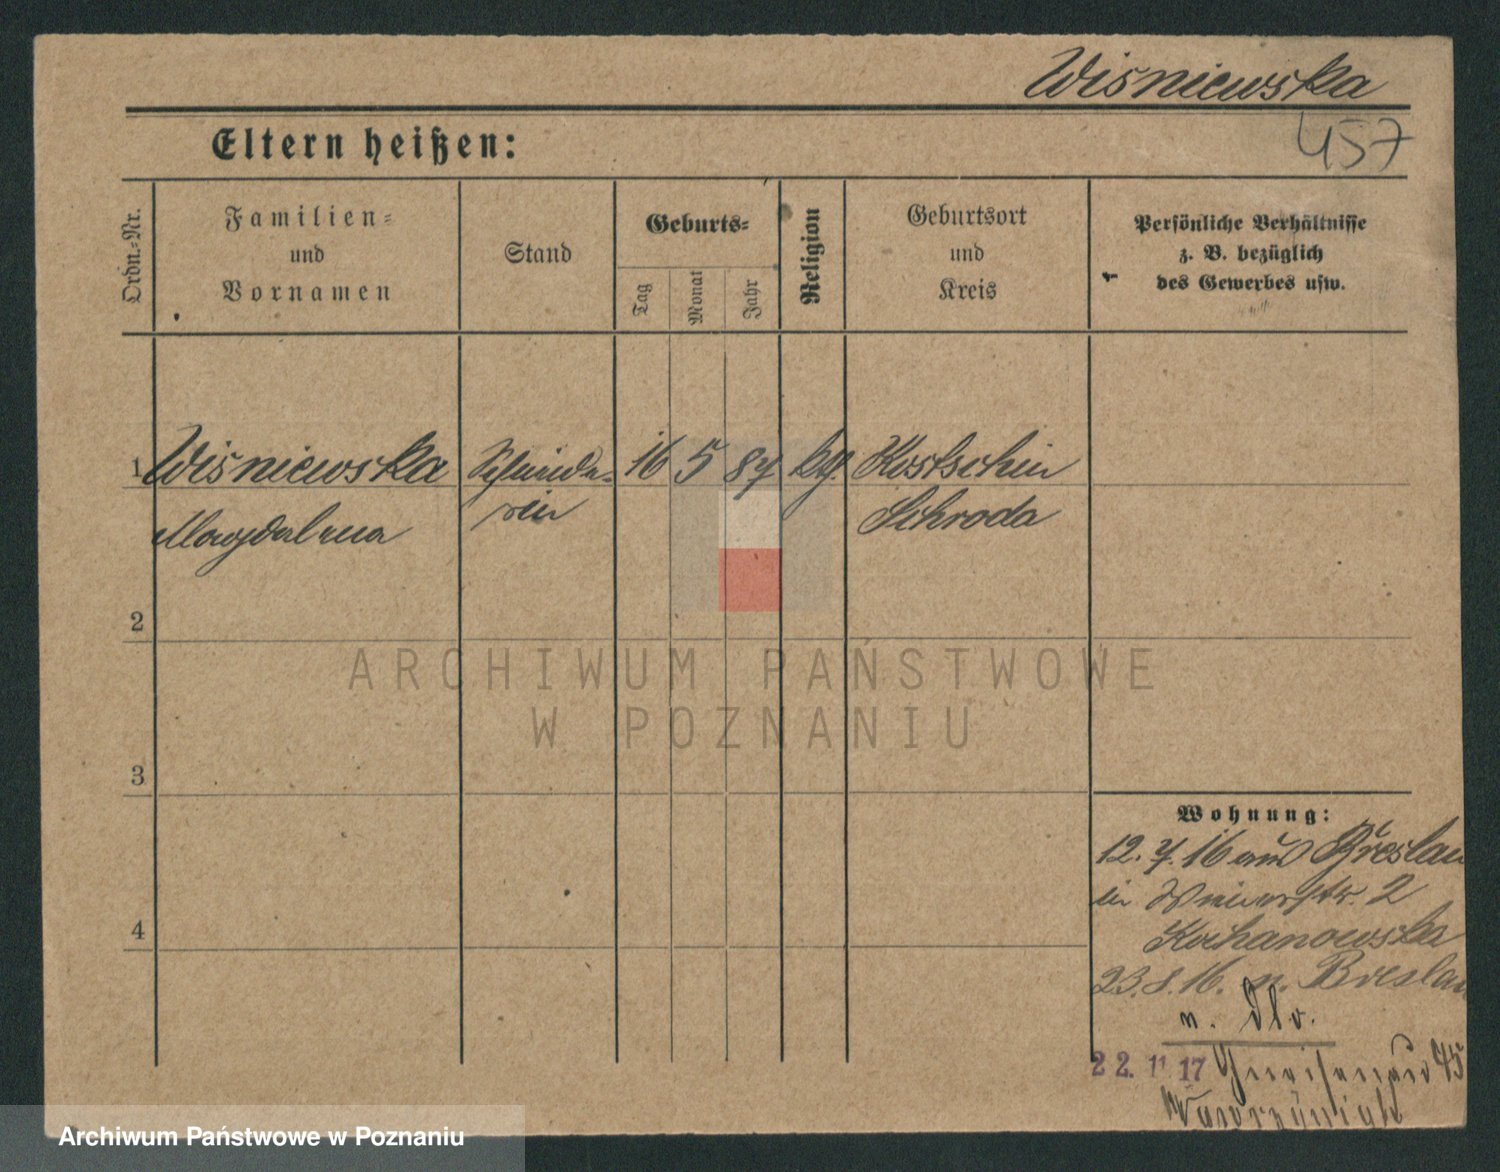 Wiśniewska
457
Eltern heißen:
Ordn.-Nr.
Familien-
und
Vornamen
Stand
Geburts-
Tag
Monat
Jahr
Religion
Geburtsort
und
Kreis
Persönliche Verhältnisse
z. B. bezüglich
des Gewerbes usw.
1 Wiśniewska Schneide- 16 5 87 kth. Kostschin
Magdalena rin Schroda
2
3
4
ARCHIWUM PAŃSTWOWE
W POZNANIU
Wohnung:
12. 7. 16 aus Breslau
in 2
Kochanowska
23. 8. 16. n. Breslau
n.
22. 11 17 Gneisenau 45
Archiwum Państwowe w Poznaniu